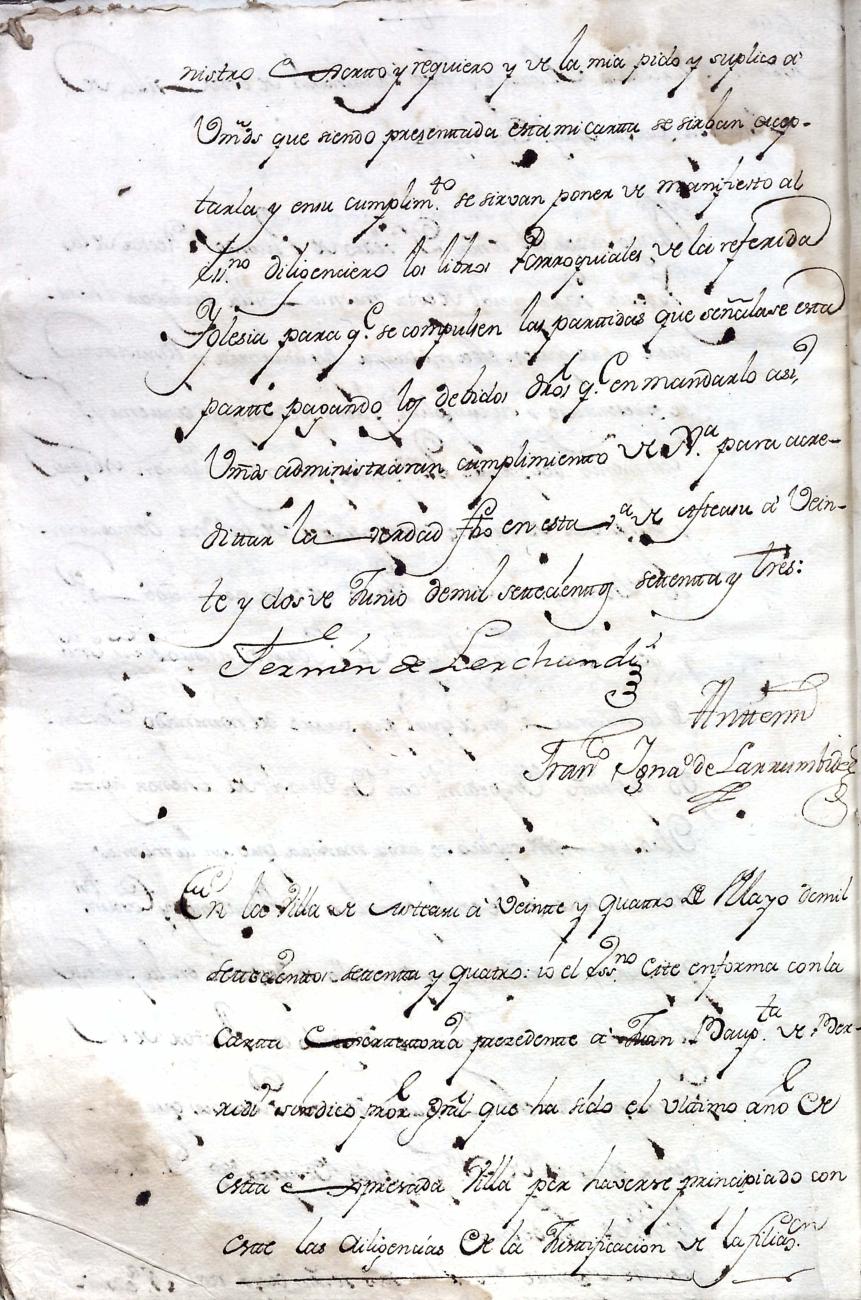 nistro Exsorto y requiero y de la mia pido y suplico a
Vm̃ds que siendo presenttada esta mi cartta se sirban acep-
tarla y en su cumplim.to se sirvan poner de manifiesto al
Ess.no diligenciero los libros Parroquiales de la referida
Yglesia para q.e se compulsen las parttidas que señalase esta
partte pagando los debidos dr̃os q.e en mandarlo asi,
Vm̃ds administraran cumplimientto de J.a para acre-
dittar la verdad fho en esta v.a de Asteasu a Vein-
te y dos de Junio de mil settecientos settentta y tres:
Fermin de Lerchundi
Antte mi
Fran.co Ygna.o de Larrumbide
En la Villa de Asteasu a Veintte y quattro de Mayo de mil
settecienttos settentta y quatro: io el Ess.no Cite en forma con la
Cartta Exsorttoria prezedentte a Juan Baup.ta de Ber-
ridi sindico pror. gral que ha sido el ultimo año de
estta expresada Villa por haverse principiado con
estte las diligencias de la Justificacion de la filiaz.on